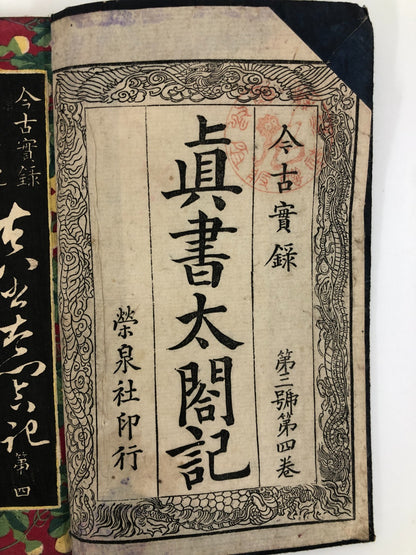 今古實録
第三號第四卷
眞書太閤記
榮泉社印行
今古實録
太閤記
第四